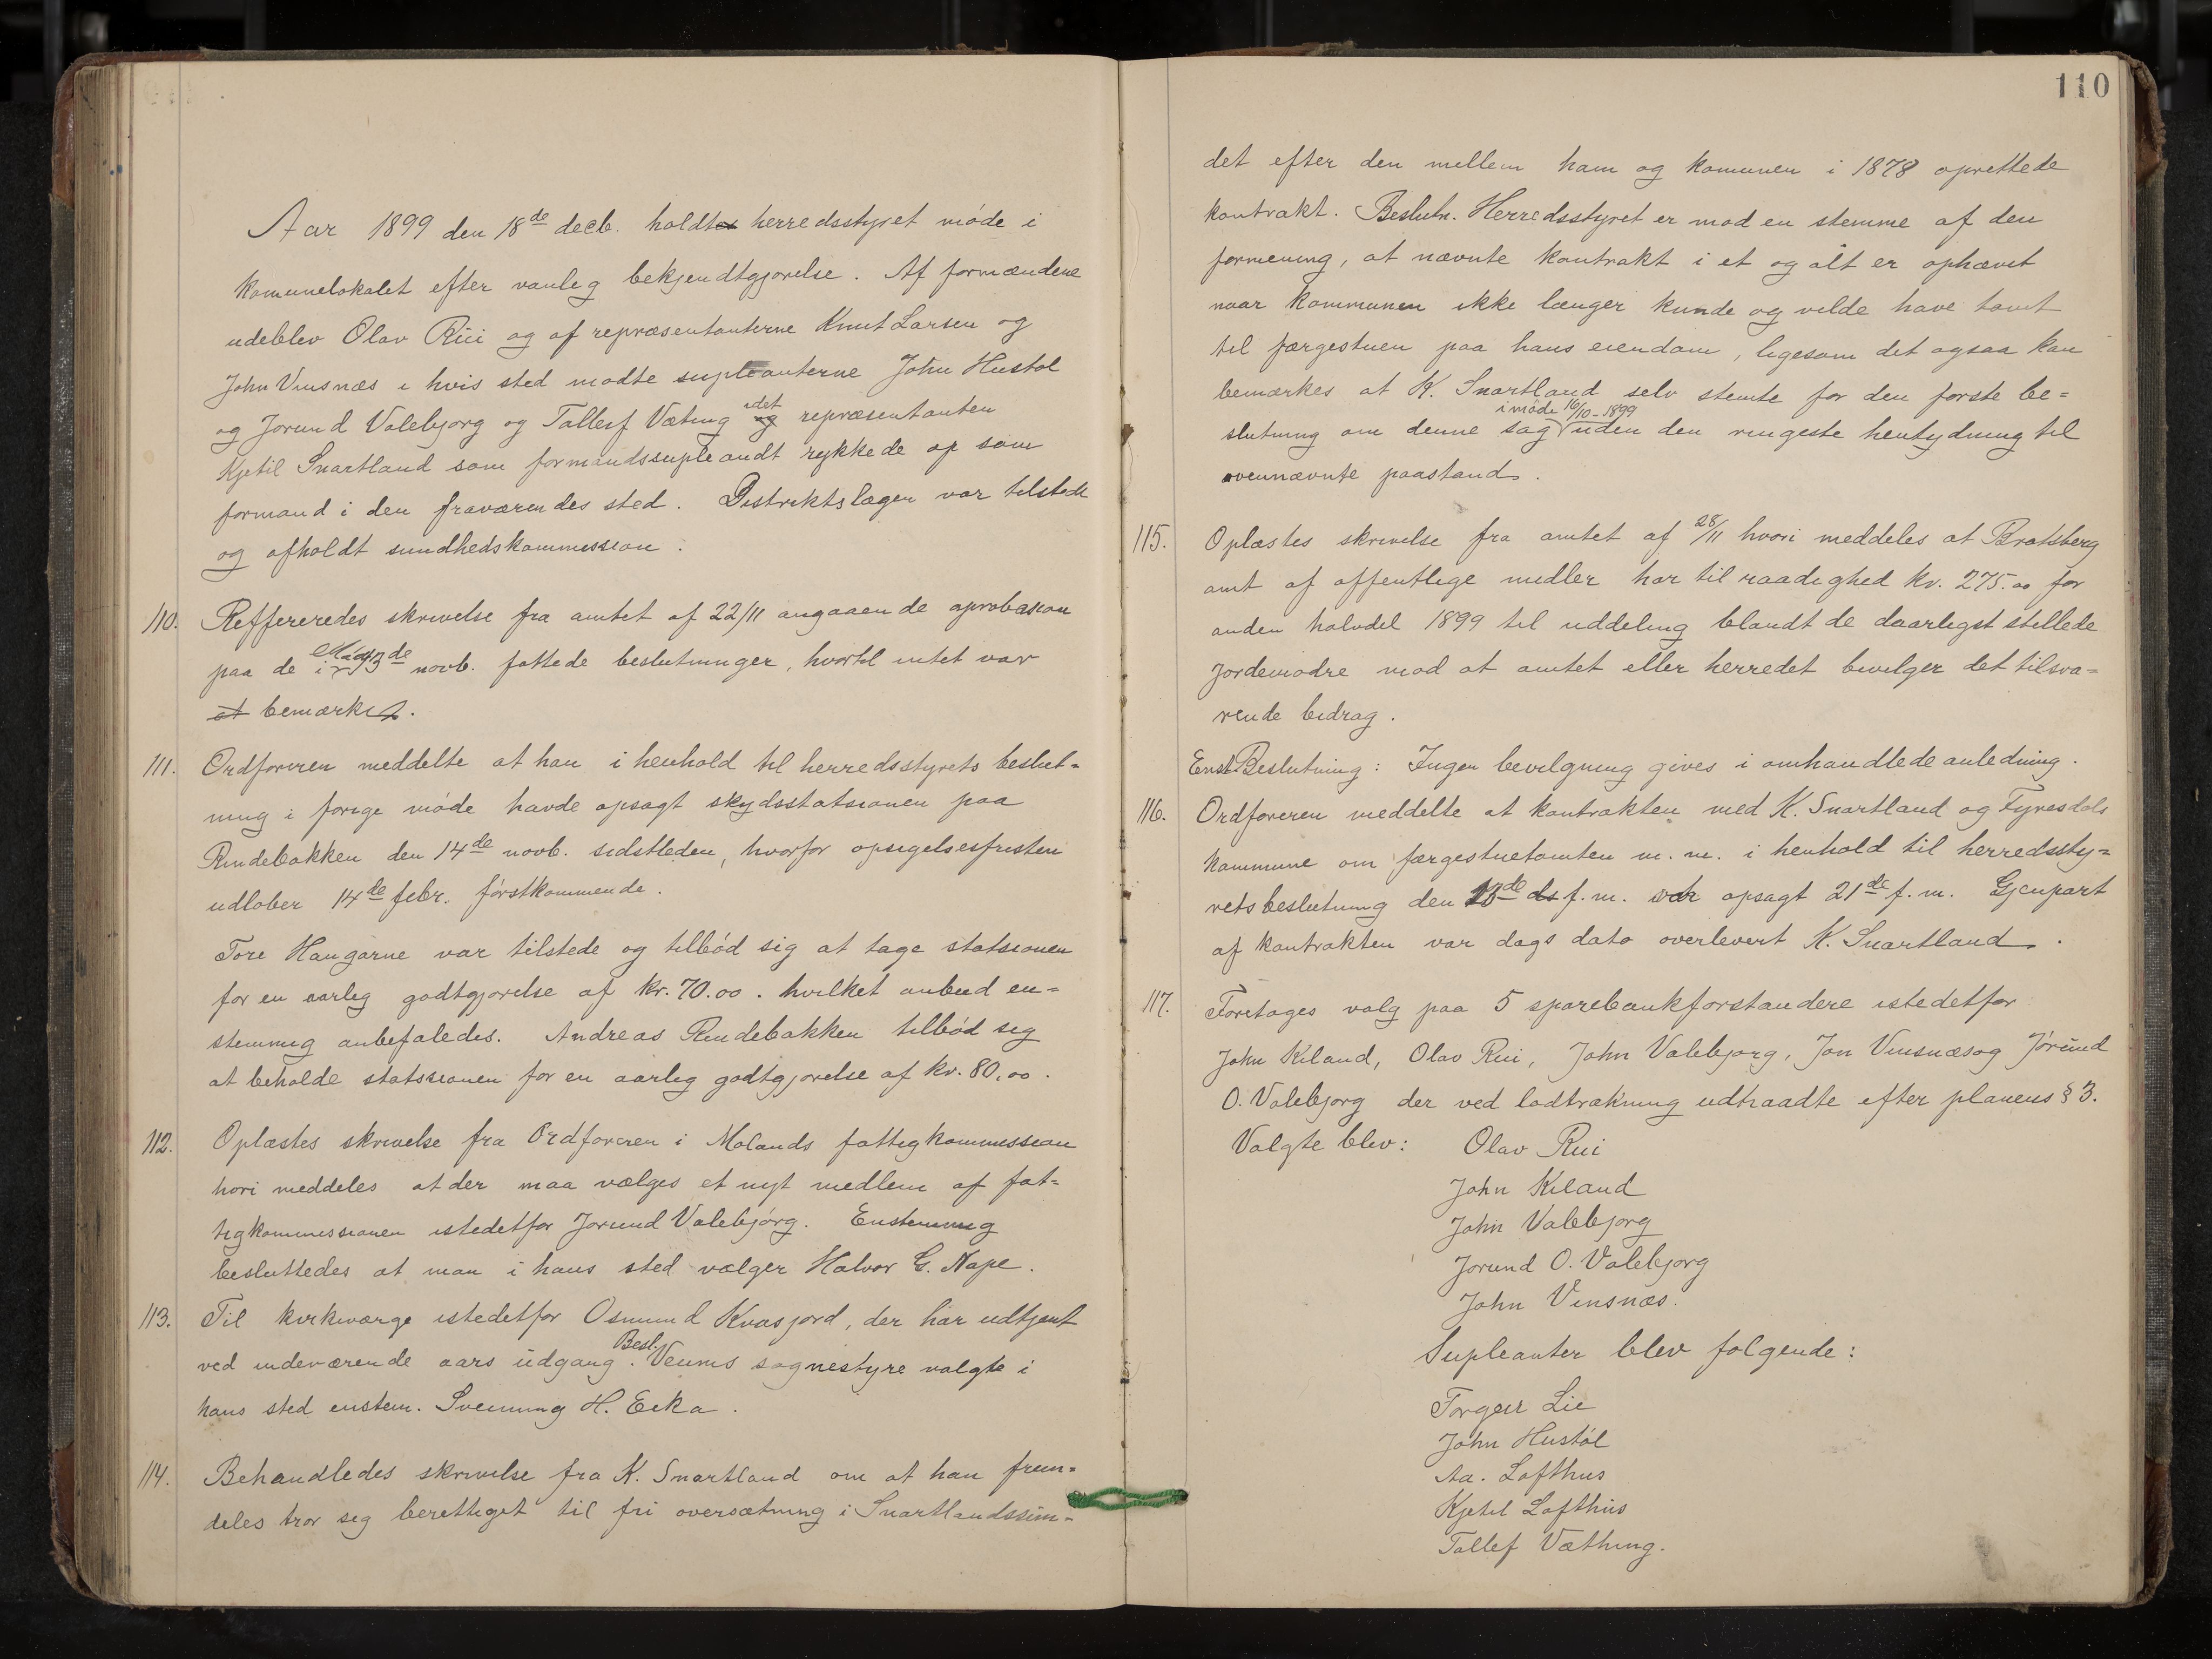 Aar 1899 den 18de decb. holdt herredsstyret møde i
Komunelokalet efter vanleg bekjendtgjorelse. Af formændene
udeblev Olav Rui og af repræsentanterne Knut Larsen og
John Vinsnæs i hvis sted modte supleanterne John Hustøl
og Jorund Valebjorg og Tallerf Væting idet repræsentanten
Kjetil Snartland som formandssupleandt rykkede op som
formand i den fraværendes sted. Distriktslægen var tilstede
og afholdt sundhedskommission.
110. Reffereredes skrivelse fra amtet af 22/11 angaaende aprobasion
paa de i møde 13de novb. fattede beslutninger, hvortil intet var
at bemærke.
111. Ordføreren meddelte at han i henhold til herredsstyrets beslut-
ning i forige møde havde opsagt skydsstatsionen paa
Rindebakken den 14de novb. sidstleden, hvorfor opsigelsesfristen
udlober 14de febr. førstkommende.
Tore Haugarne var tilstede og tilbød sig at tage statsionen
for en aarleg godtgjorelse af kr. 70.00. hvilket anbud en-
stemmig anbefaledes. Andreas Rindebakken tilbød sig
at beholde statssionen for en aarleg godtgjorelse af kr. 80,00.
112. Oplæstes skrivelse fra Ordføreren i Molands fattigkommission
hvori meddeles at der maa vælges et nyt medlem af fat-
tigkommissionen istedetfor Jorund Valebjørg. Enstemmig
besluttedes at man i hans sted vælger Halvor G. Nape.
113. Til kirkeværge istedetfor Osmund Kvasjord, der har udtjent
ved indeværende aars udgang. Besl. Veums sognestyre valgte i
hans sted enstem. Sveinung H. Eeka.
114. Behandledes skrivelse fra K. Snartland om at han frem-
deles tror seg berettiget til fri oversætning i Snartlandssun-
110
det efter den mellem ham og komunen i 1878 oprettede
kontrakt. Beslutn. Herredsstyret er mod en stemme af den
formening, at nævnte kontrakt i et og alt er ophævet
naar kommunen ikke længer kunde og vilde have tomt
til færgestuen paa hans eiendom, ligesom det ogsaa kan
bemærkes at K. Snartland selv stemte for den første be-
slutning om denne sag i møde 16/10-1899 uden den ringeste hentydning til
ovennævnte paastand.
115. Oplæstes skrivelse fra amtet af 28/11 hvori meddeles at Bratsberg
amt af offentlige midler har til raadighed kr. 275.00 for
anden halvdel 1899 til uddeling blandt de daarligst stillede
jordemødre mod at amtet eller herredet bevilger det tilsva-
rende bidrag.
Enst. Beslutning: Ingen bevilgning gives i omhandlede anledning.
116. Ordføreren meddelte at kontrakten med K. Snartland og Fyresdals
kommune om færgestuetomten m. m. i henhold til herredssty-
rets beslutning den 13de f. m. var opsagt 21de f. m. Gjenpart
af kontrakten var dags dato overlevert K. Snartland.
117. Foretages valg paa 5 sparebankforstandere istedetfor
John Kiland, Olav Rui, John Valebjorg, Jon Vinsnæs og Jørund
O. Valebjorg der ved lodtrækning udtraadte efter planens § 3.
Valgte blev: Olav Rui
John Kiland
John Valebjorg
Jorund O. Valebjorg
John Vinsnæs.
Supleanter blev følgende:
Torgeir Lie
John Hustøl
Aa. Lofthus
Kjetil Lofthus
Tallef Væthing.